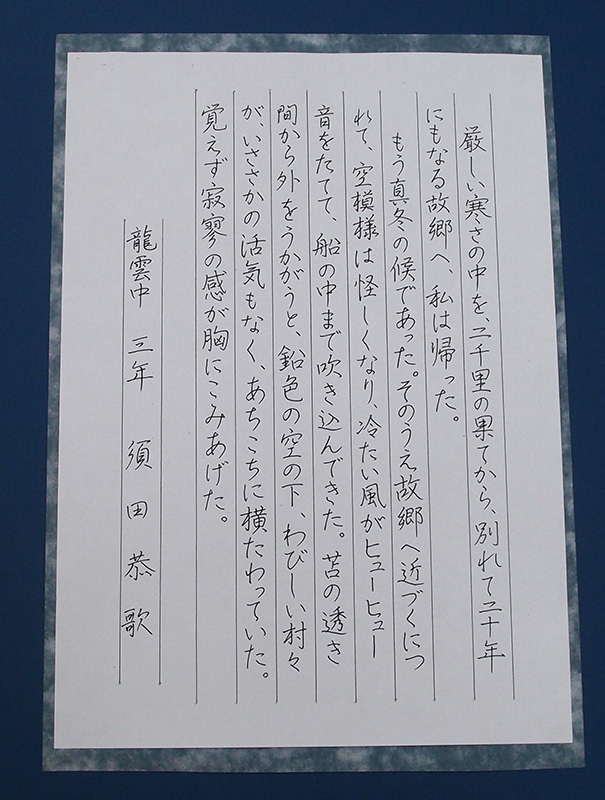 厳しい寒さの中を、二千里の果てから、別れて二十年
にもなる故郷へ、私は帰った。
もう真冬の候であった。そのうえ故郷へ近づくにつ
れて、空模様は怪しくなり、冷たい風がヒューヒュー
音をたてて、船の中まで吹き込んできた。苫の透き
間から外をうかがうと、鉛色の空の下、わびしい村々
が、いささかの活気もなく、あちこちに横たわっていた。
覚えず寂寥の感が胸にこみあげた。
龍雲中 三年 須田恭歌